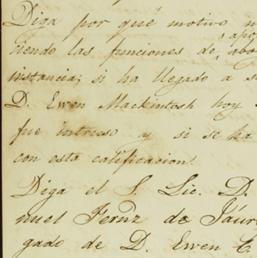 Diga por qué motivo
ciendo las funciones de
instancia; si ha llegado a
D. Ewen Mackintosh hoy
fue intruso y si se ha
con esta calificacion.
Diga el S. Lic. D.
nuel Fernz de Jáur
gado de D. Ewen C.